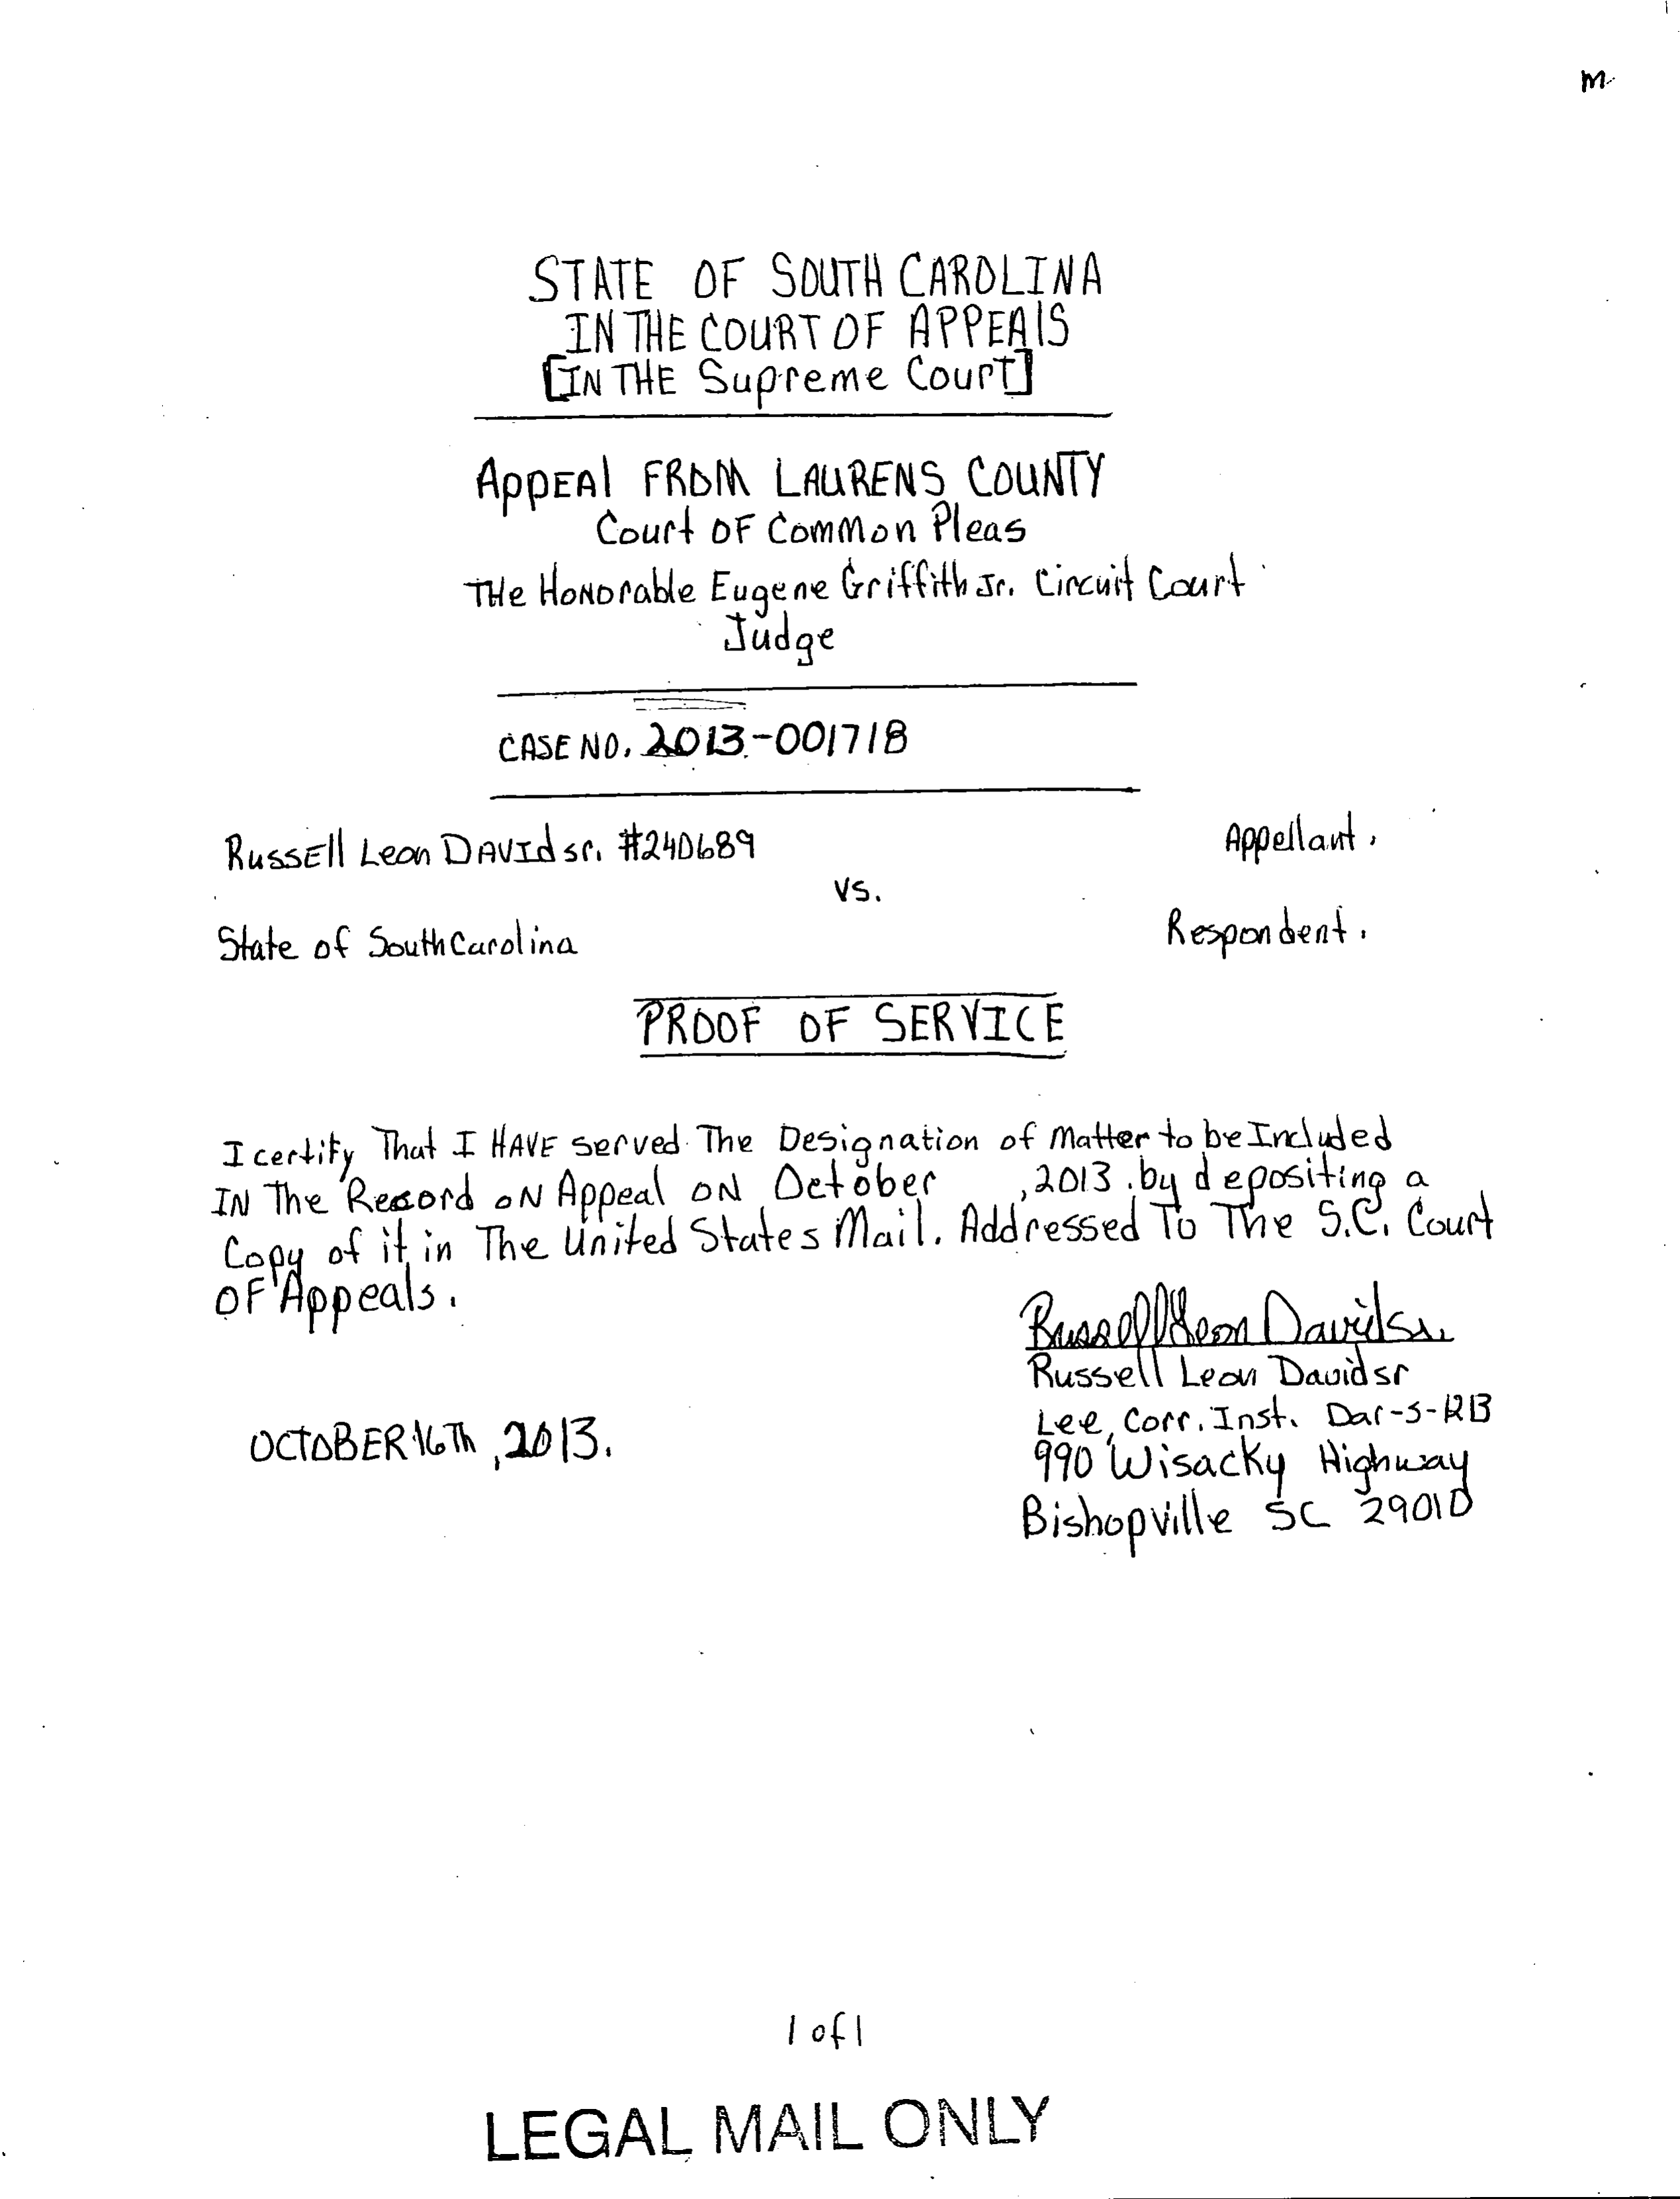 m
STATE OF SOUTH CAROLINA
IN THE COURT OF APPEAlS
[IN THE Supreme Court]
AppEAl FROM LAURENS COUNTY
Court OF Common Pleas
THe HoNorable Eugene Griffith Jr. Circuit Court
Judge
CASE NO. 2013-001718
RussEll Leon DAVId sr. #240689 Appellant.
vs.
State of South Carolina Respondent.
PROOF OF SERVICE
I certify That I HAVE served The Designation of Matter to be Included
IN The Record oN Appeal oN October ,2013. by depositing a
Copy of it in The United States Mail. Addressed To The S.C. Court
OF Appeals.
Russell Leon David Sr.
Russell Leon David sr
Lee Corr. Inst. Dar-S-12B
OCTOBER 16Th, 2013.
990 Wisacky Highway
Bishopville SC 29010
1 of 1
LEGAL MAIL ONLY